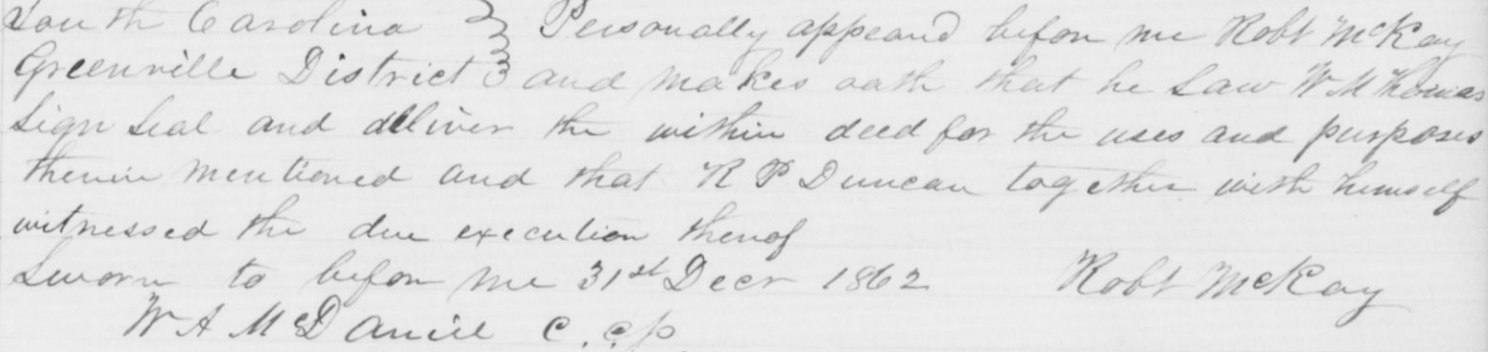 South Carolina } Personally appeared before me Robt McKay
Greenville District } and makes oath that he saw W M Thomas
sign seal and deliver the within deed for the uses and purposes
therein mentioned and that R P Duncan together with himself
witnessed the due execution thereof
Sworn to before me 31st Decr 1862 Robt McKay
W A McDaniel C.C.P.